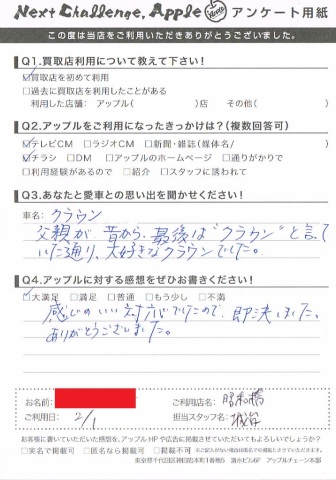 Next Challenge, Apple アンケート用紙
この度は当店をご利用いただきありがとうございました。
Q1.買取店利用について教えて下さい!
☑買取店を初めて利用
□過去に買取店を利用したことがある
利用した店舗: アップル( )店 その他( )
Q2.アップルをご利用になったきっかけは?(複数回答可)
☑テレビCM □ラジオCM □新聞・雑誌(媒体名/ )
☑チラシ □DM □アップルのホームページ □通りがかりで
□利用経験があるので □紹介 □スタッフに誘われて
Q3.あなたと愛車との思い出を聞かせください!
車名: クラウン
父親が、昔から、最後は"クラウン"と言って
いた通り、大好きなクラウンでした。
Q4.アップルに対する感想をぜひお書きください!
☑大満足 □満足 □普通 □もう少し □不満
感じのいい対応でしたので、即決しました。
ありがとうございました。
お名前: ご利用店名: 昭和橋
ご利用日: 2/1 担当スタッフ名:
お客様に書いていただいた感想を、アップルHPや広告に掲載させていただいてもよろしいでしょうか?
□実名で掲載可 □匿名なら掲載可 □掲載不可
東京都千代田区神田松本町1番地5 清水ビル6F アップルチェーン本部